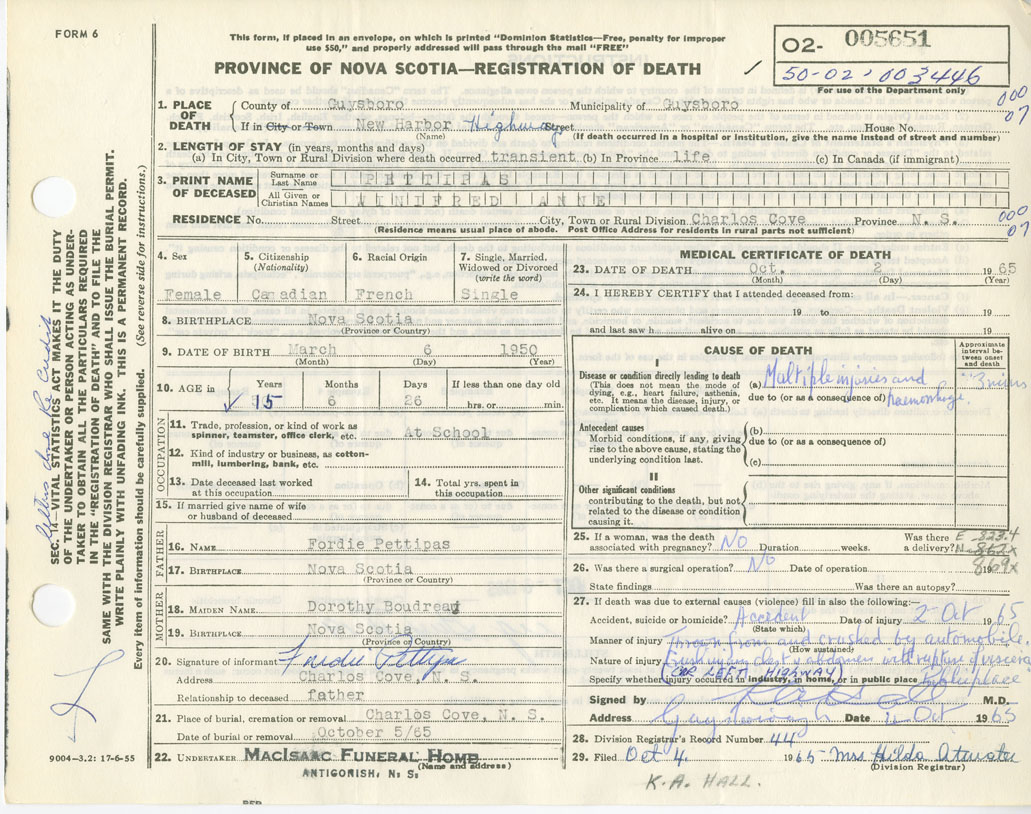 FORM 6
This form, if placed in an envelope, on which is printed "Dominion Statistics—Free, penalty for improper
use $50," and properly addressed will pass through the mail "FREE"
PROVINCE OF NOVA SCOTIA—REGISTRATION OF DEATH
O2- 005651
50-02-003446
For use of the Department only
000
07
1. PLACE OF DEATH
County of Guysboro Municipality of Guysboro
If in City or Town New Harbor Highway Street House No.
(Name) (If death occurred in a hospital or institution, give the name instead of street and number)
2. LENGTH OF STAY (in years, months and days)
(a) In City, Town or Rural Division where death occurred transient (b) In Province life (c) In Canada (if immigrant)
3. PRINT NAME OF DECEASED
Surname or Last Name PETTIPAS
All Given or Christian Names WINIFRED ANNE
RESIDENCE No. Street City, Town or Rural Division Charlos Cove Province N. S.
(Residence means usual place of abode. Post Office Address for residents in rural parts not sufficient)
000
07
4. Sex
Female
5. Citizenship (Nationality)
Canadian
6. Racial Origin
French
7. Single, Married, Widowed or Divorced (write the word)
Single
8. BIRTHPLACE Nova Scotia
(Province or Country)
9. DATE OF BIRTH March 6 1950
(Month) (Day) (Year)
10. AGE in Years Months Days If less than one day old
15 6 26 hrs. or min.
OCCUPATION
11. Trade, profession, or kind of work as spinner, teamster, office clerk, etc. At School
12. Kind of industry or business, as cotton-mill, lumbering, bank, etc.
13. Date deceased last worked at this occupation
14. Total yrs. spent in this occupation
15. If married give name of wife or husband of deceased
FATHER
16. NAME Fordie Pettipas
17. BIRTHPLACE Nova Scotia
(Province or Country)
MOTHER
18. MAIDEN NAME Dorothy Boudreau
19. BIRTHPLACE Nova Scotia
(Province or Country)
20. Signature of informant Fordie Pettipas
Address Charlos Cove, N. S.
Relationship to deceased father
21. Place of burial, cremation or removal Charlos Cove, N. S.
Date of burial or removal October 5/65
22. UNDERTAKER MACISAAC FUNERAL HOME
(Name and address)
ANTIGONISH, N. S.
MEDICAL CERTIFICATE OF DEATH
23. DATE OF DEATH Oct. 2 1965
(Month) (Day) (Year)
24. I HEREBY CERTIFY that I attended deceased from:
19 to 19
and last saw h alive on 19
CAUSE OF DEATH
Approximate interval between onset and death
I
Disease or condition directly leading to death
(This does not mean the mode of dying, e.g., heart failure, asthenia, etc. It means the disease, injury, or complication which caused death.)
(a) Multiple injuries and
due to (or as a consequence of) haemorrhage.
Antecedent causes
Morbid conditions, if any, giving rise to the above cause, stating the underlying condition last.
(b)
due to (or as a consequence of)
(c)
II
Other significant conditions
contributing to the death, but not related to the disease or condition causing it.
25. If a woman, was the death associated with pregnancy? NO Duration weeks. Was there a delivery?
E 823.4
N 862x
869x
26. Was there a surgical operation? No Date of operation 19
State findings Was there an autopsy?
27. If death was due to external causes (violence) fill in also the following:—
Accident, suicide or homicide? Accident Date of injury 2 Oct 1965
(State which)
Manner of injury thrown from and crushed by automobile
(How sustained)
Nature of injury Crush injury chest & abdomen with rupture of viscera
(CAR LEFT HIGHWAY)
Specify whether injury occurred in industry, in home, or in public place Public place
Signed by M.D.
Address Guysborough Date Oct 1965
28. Division Registrar's Record Number 44
29. Filed Oct 4 1965 Mrs Hilda
(Division Registrar)
K.A. HALL.
SEC. 14—VITAL STATISTICS ACT MAKES IT THE DUTY
OF THE UNDERTAKER OR PERSON ACTING AS UNDER-
TAKER TO OBTAIN ALL THE PARTICULARS REQUIRED
IN THE "REGISTRATION OF DEATH" AND TO FILE THE
SAME WITH THE DIVISION REGISTRAR WHO SHALL ISSUE THE BURIAL PERMIT.
WRITE PLAINLY WITH UNFADING INK. THIS IS A PERMANENT RECORD.
Every item of information should be carefully supplied. (See reverse side for instructions.)
9004—3.2: 17-6-55